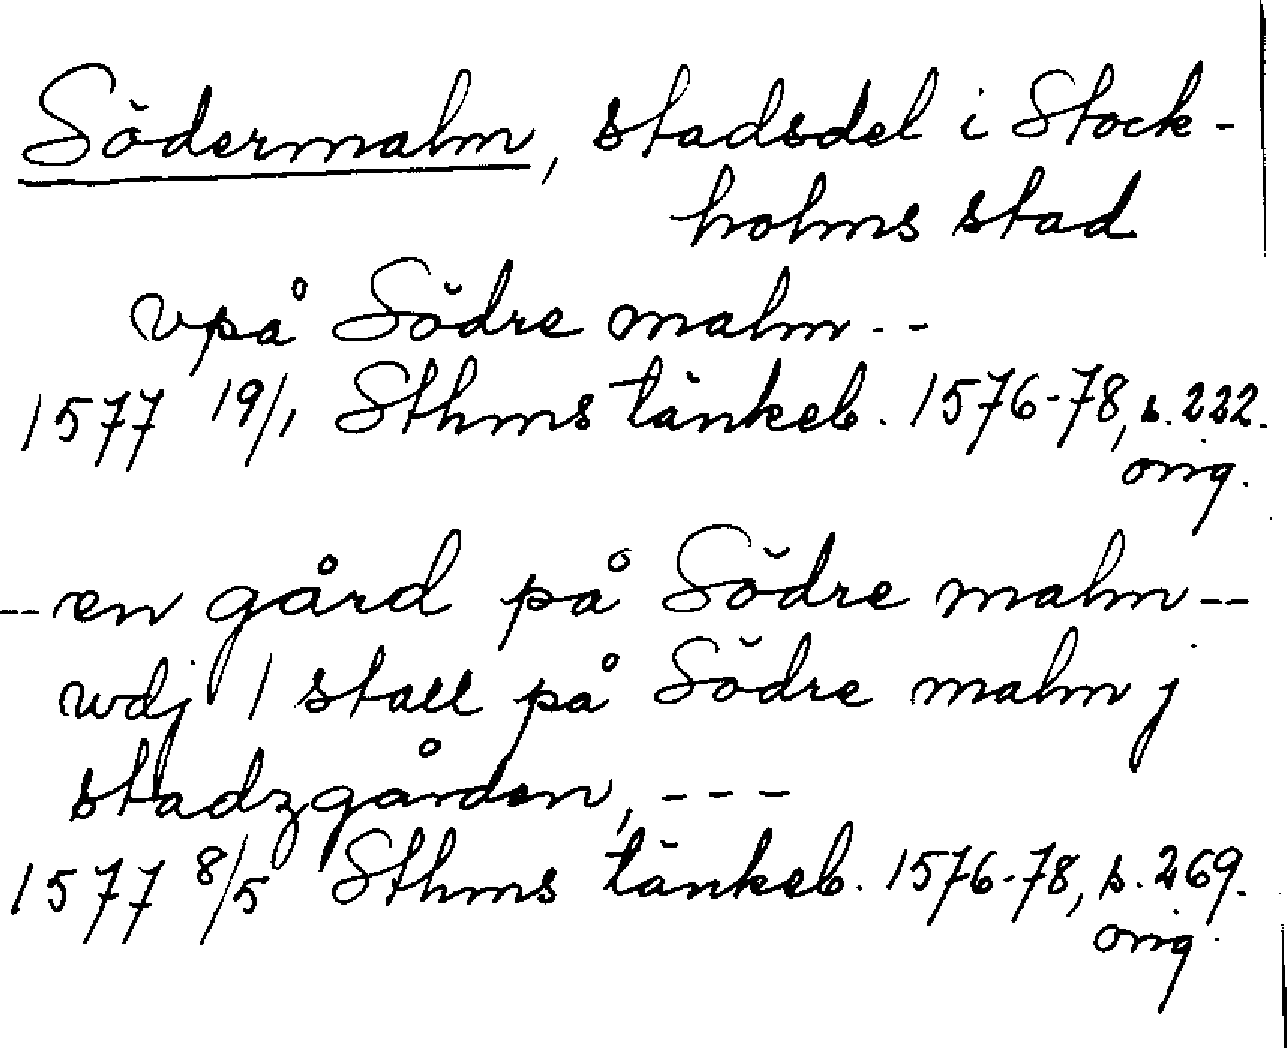 Södermalm, stadsdel i Stock-
holms stad
vpå Södre malm --
1577 19/1 Sthms tänkeb. 1576-78, s. 222.
orig.
-- en gård på Södre malm --
wdj 1 stall på Södre malm j
stadzgården, ---
1577 8/5 Sthms tänkeb. 1576-78, s. 269.
orig.